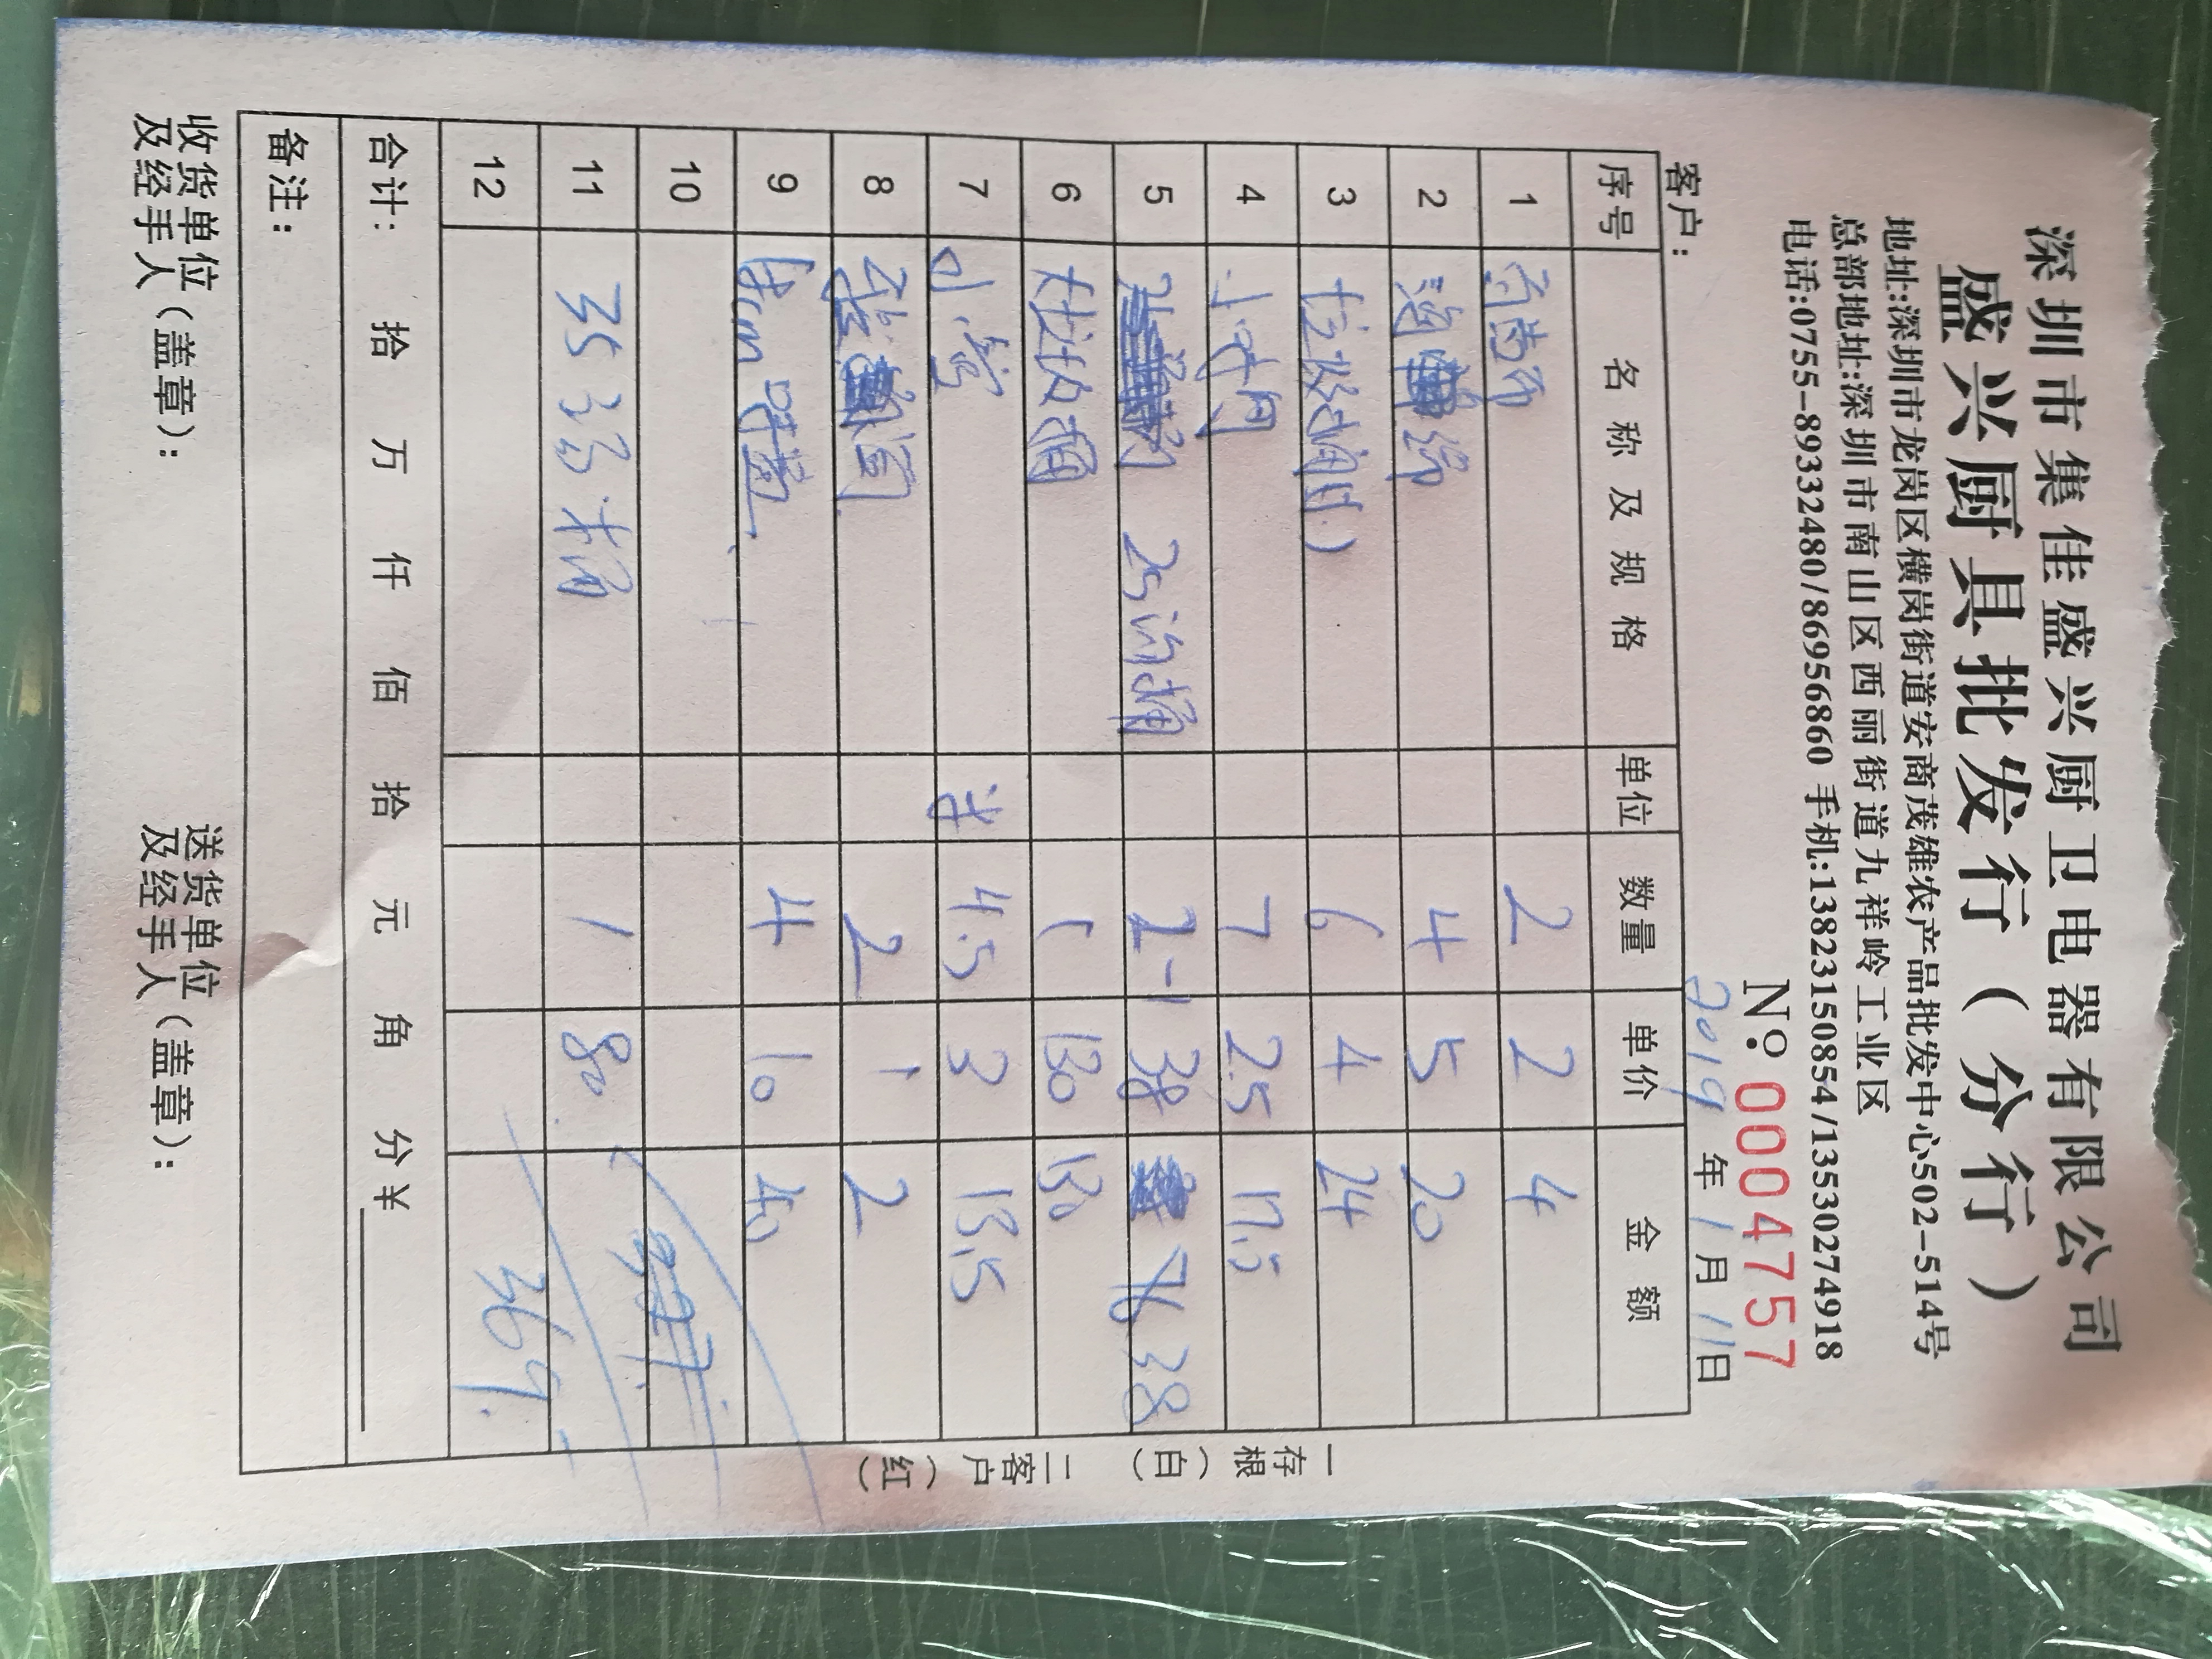 深圳市集佳盛兴厨卫电器有限公司
盛兴厨具批发行（分行）
地址:深圳市龙岗区横岗街道安商茂雄农产品批发中心502-514号
总部地址:深圳市南山区西丽街道九祥岭工业区
电话:0755-89332480/86956860 手机:13823150854/13530274918
№ 0004757
客户： 2019 年 1 月 11 日
序号 名称及规格 单位 数量 单价 金额
1 百洁布 2 2 4
2 海绵 4 5 20
3 垃圾桶 6 4 24
4 7 2.5 17.5
5 25 桶 2-1 38 76 38
6 大垃圾桶 1 130 130
7 水管 半 4.5 3 13.5
8 2 1 2
9 cm 味盅 4 10 40
10 327.
11 35 汤桶 1 80
12 369.
合计: 拾 万 仟 佰 拾 元 角 分 ¥
备注：
收货单位及经手人（盖章）： 送货单位及经手人（盖章）：
一存根（白） 二客户（红）